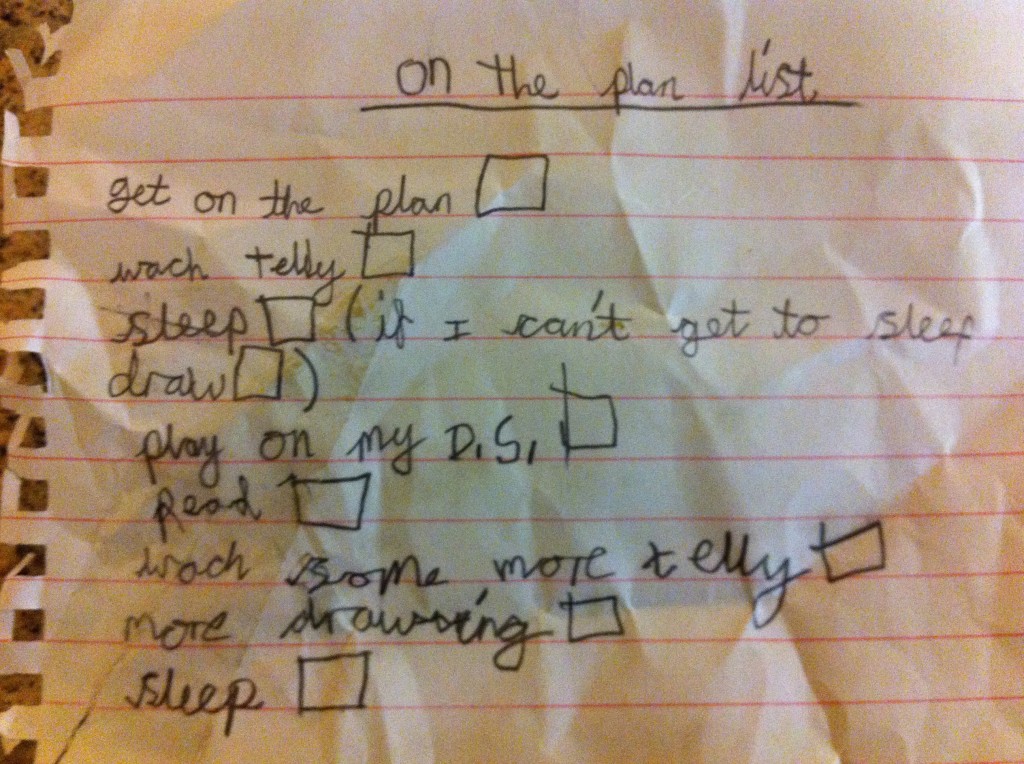 on the plan list
get on the plan
wach telly
sleep (if I can't get to sleep
draw )
play on my D.S.
read
wach some more telly
more drawing
sleep